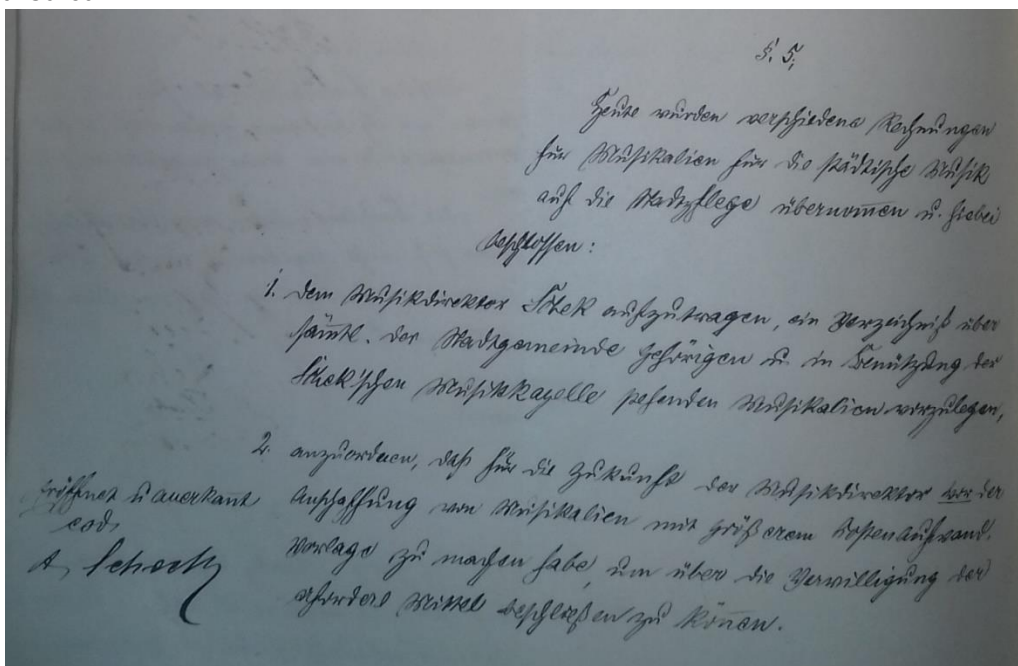 §. 5;
Heute wurden verschiedene Rechnungen
für Musikalien für die städtische Musik
auf die Stadtpflege übernom̅en u. hiebei
beschlossen:
1. dem Musikdirektor Schek aufzutragen, ein Verzeichniß über
säm̅tl. der Stadtgemeinde gehörigen u. in Benützung der
Schek'schen Musikkapelle stehenden Musikalien vorzulegen,
2. anzuordnen, daß für die Zukunft der Musikdirektor vor der
Anschaffung von Musikalien mit größerem Kostenaufwand
Vorlage zu machen habe, um über die Verwilligung der
Mittel beschließen zu kön̅en.
eröffnet u anerkannt
eod.